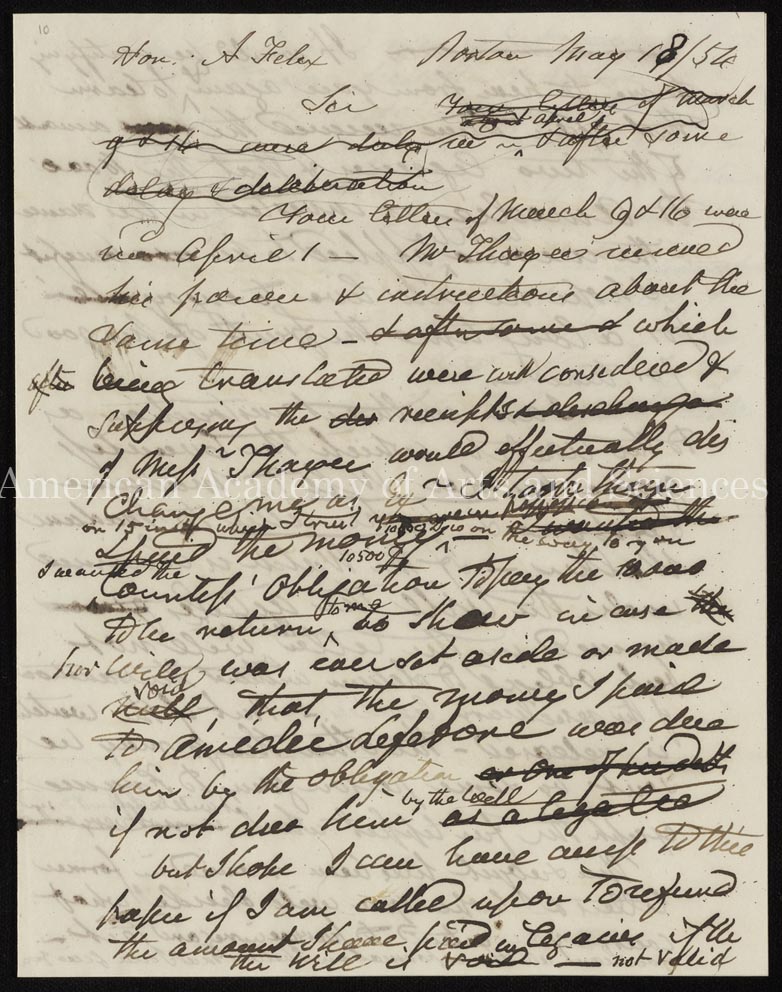 10
Hon. A Felix Boston May 18/54
Sir Your letters of March
april 1
9 & 16 were duly & after some
delay & deliberation
Your letters of March 9 & 16 were
April 1 — Mr Thayer received
his power & instructions about the
same time - & after some & which
after being translated were well considered &
supposing the receipts & discharge
of Messrs Thayer would effectually dis
charge me as
on 15 inst when I trust on the way to you
the money
10500 f
I wanted the
Countess' obligation to pay the
to me
to be returned to show in case the
her will was ever set aside or made
void
null, that the money I paid
to Amedée Lefebvre was due
him by the obligation or one of his
by the will
if not due him as a legatee
but I hope I can have access to the
paper if I am called upon to refund
the amount I have paid in legacies if the
the will is void — not valid
American Academy of Arts and Sciences